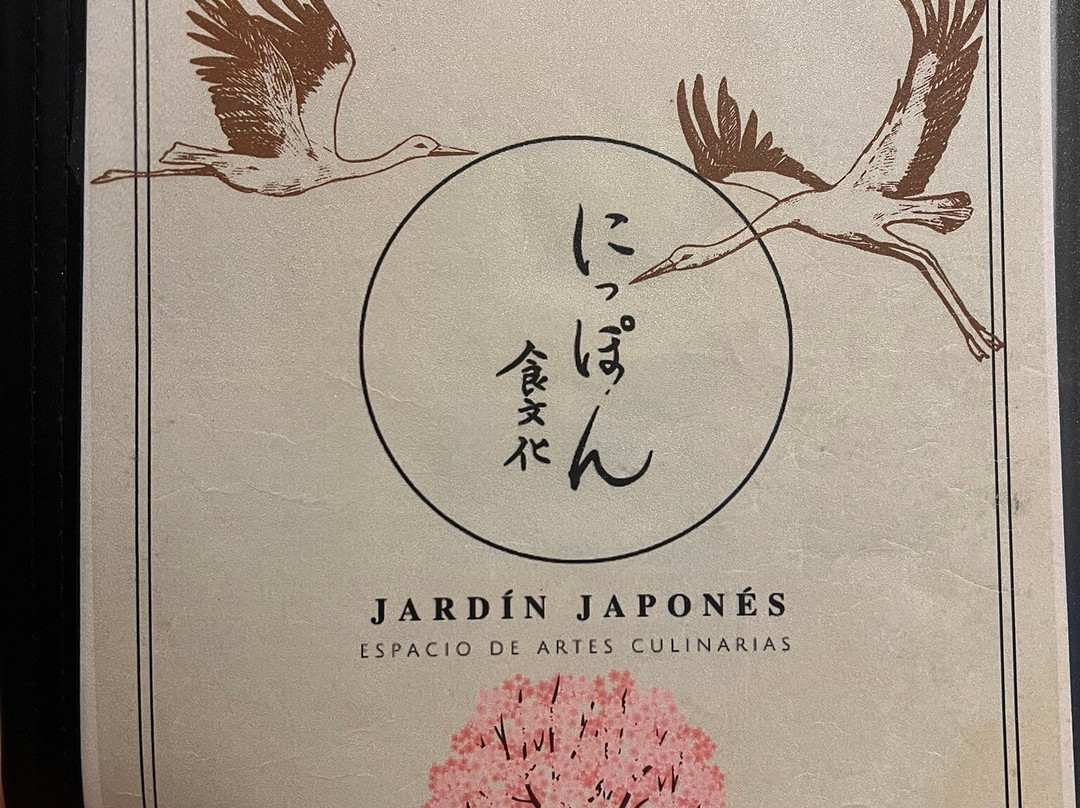 にっぽん
食文化
JARDÍN JAPONÉS
ESPACIO DE ARTES CULINARIAS